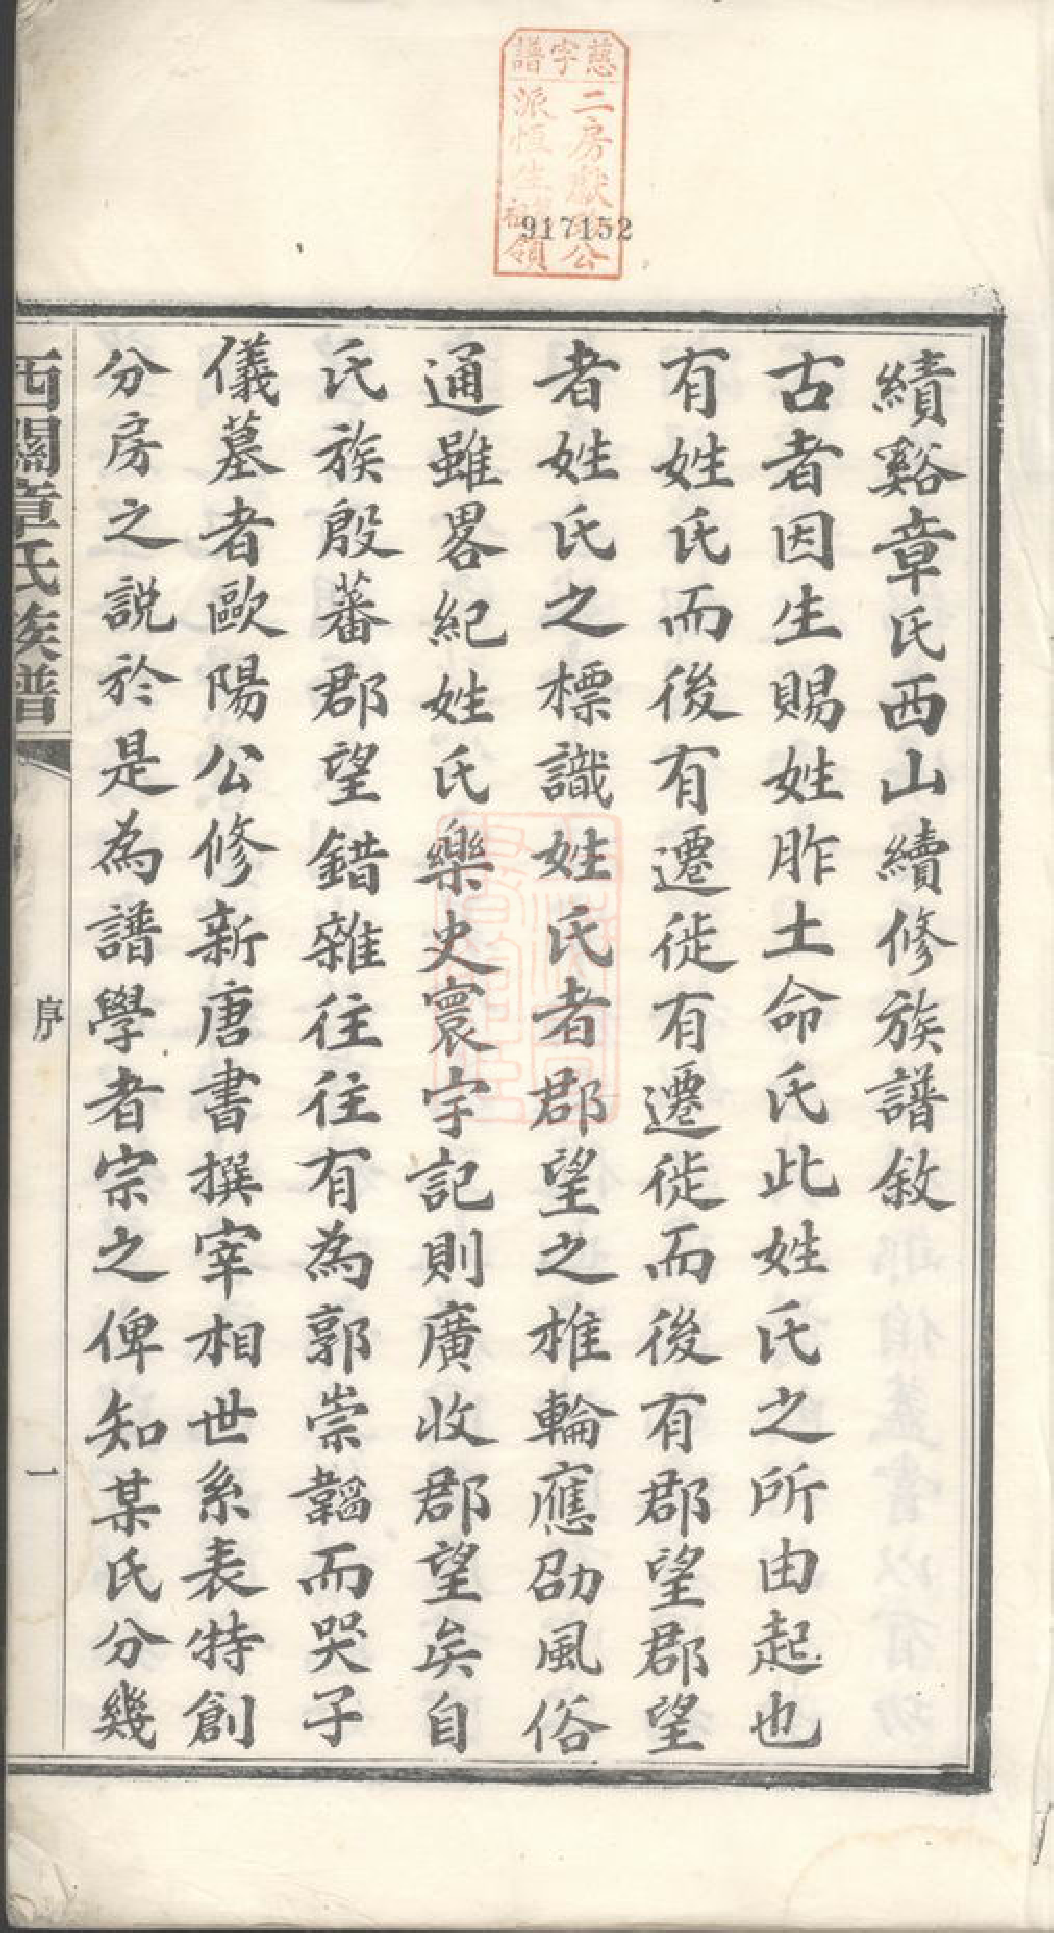 慈字譜
二房獻公
派恆生領
917152
績谿章氏西山續修族譜敘
古者因生賜姓胙土命氏此姓氏之所由起也
有姓氏而後有遷徙有遷徙而後有郡望郡望
者姓氏之標識姓氏者郡望之椎輪應劭風俗
通雖畧紀姓氏樂史寰宇記則廣收郡望矣自
氏族殷蕃郡望錯雜往往有為郭崇韜而哭子
儀墓者歐陽公修新唐書撰宰相世系表特創
分房之説於是為譜學者宗之俾知某氏分幾
西關章氏族譜
序
一